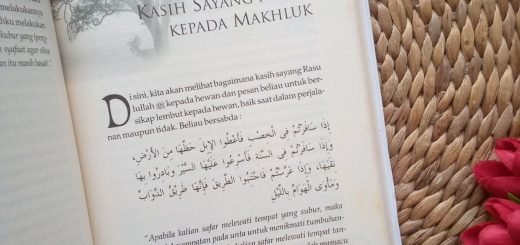 melakukannya.
melakukan
kubur yang
syafaat agar siksa
itu masih basah".
KASIH SAYANG
KEPADA MAKHLUK
Di sini, kita akan melihat bagaimana kasih sayang Rasu
lullah ﷺ kepada hewan dan pesan beliau untuk ber-
sikap lembut kepada hewan, baik saat dalam perjala-
nan maupun tidak. Beliau bersabda :
إِذَا سَافَرْتُمْ فِي الْخِصْبِ فَأَعْطُوا الْإِبِلَ حَظَّهَا مِنَ الْأَرْضِ،
إِذَا سَافَرْتُمْ فِي السَّنَةِ فَأَسْرِعُوا عَلَيْهَا السَّيْرَ وَبَادِرُوا بِهَا
نِقْيَهَا، وَإِذَا عَرَّسْتُمْ فَاجْتَنِبُوا الطَّرِيقَ فَإِنَّهَا طَرِيقُ الدَّوَابِّ
وَمَأْوَى الْهَوَامِّ بِاللَّيْلِ
"Apabila kalian safar melewati tempat yang subur, maka
empatan pada unta untuk menikmati tumbuhan-
kalian safar melewati
memacu